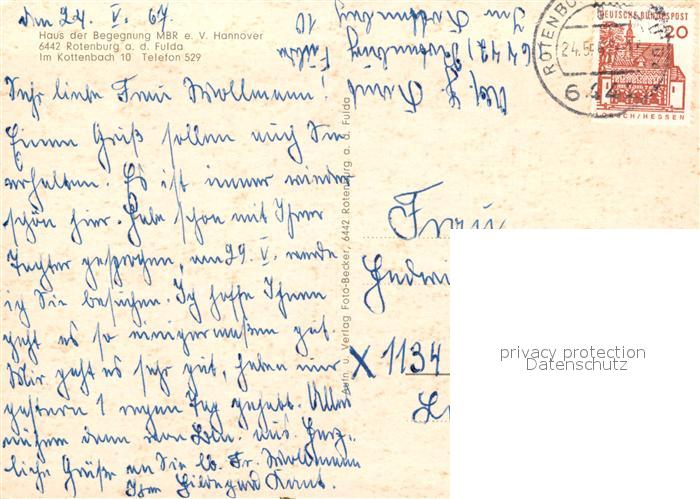 den 24. V. 67.
Haus der Begegnung MBR e. V. Hannover
6442 Rotenburg a. d. Fulda
Im Kottenbach 10 Telefon 529
Sehr liebe Frau Wollmann!
Einen Gruß sollen auch Sie
erhalten. Es ist immer wieder
schön hier. Habe schon mit Ihrer
Tochter gesprochen, am 29. V. werde
ich Sie besuchen. Ich hoffe Ihnen
geht es so einigermaßen gut.
Mir geht es sehr gut, haben nur
gestern 1 regen Tag gehabt. Alles
Herz-
liche Grüße an Sie lb. Fr. Wollmann
Ihre Hildegard
Abs. H.
6442 Rotenburg
Fulda
Im Kottenbach
10
Aufn. u. Verlag Foto-Becker, 6442 Rotenburg a. d. Fulda
ROTENBU
24.5.6
DEUTSCHE BUNDESPOST
20
LORSCH/HESSEN
Frau
Hedwi
X 1134
privacy protection
Datenschutz